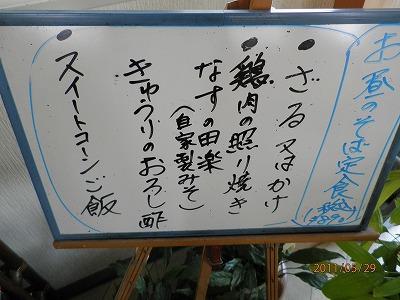 お昼のそば定食
ざる又はかけ
鶏肉の照り焼き
なすの田楽
(自家製みそ)
きゅうりのおろし酢
スイートコーンご飯
2011/05/29